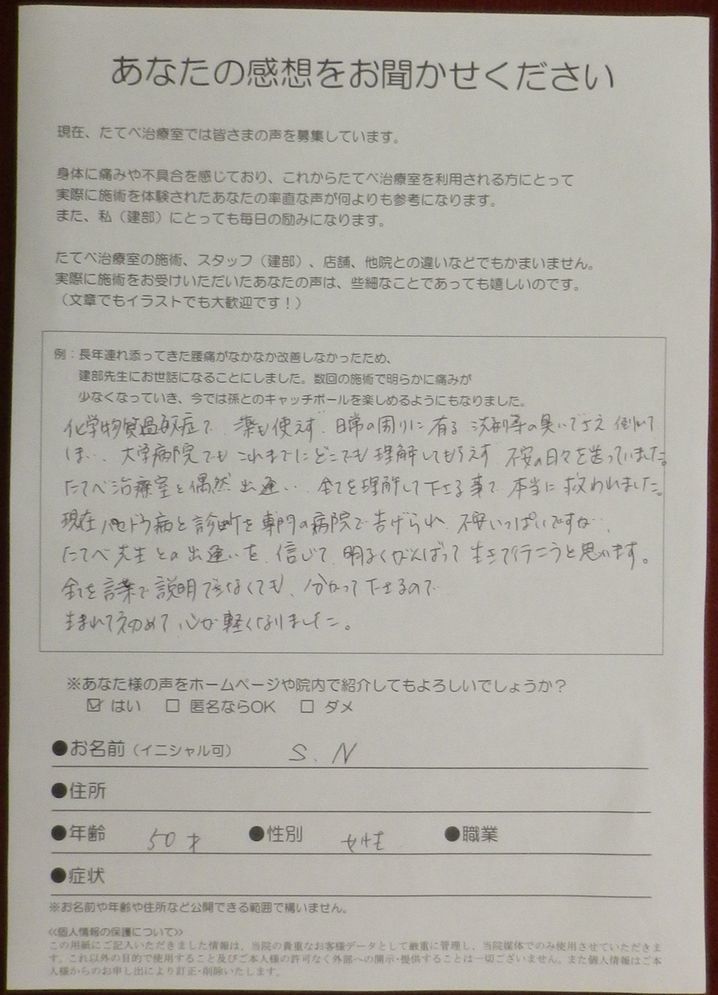 あなたの感想をお聞かせください
現在、たてべ治療室では皆さまの声を募集しています。
身体に痛みや不具合を感じており、これからたてべ治療室を利用される方にとって
実際に施術を体験されたあなたの率直な声が何よりも参考になります。
また、私（建部）にとっても毎日の励みになります。
たてべ治療室の施術、スタッフ（建部）、店舗、他院との違いなどでもかまいません。
実際に施術をお受けいただいたあなたの声は、些細なことであっても嬉しいのです。
（文章でもイラストでも大歓迎です！）
例：長年連れ添ってきた腰痛がなかなか改善しなかったため、
建部先生にお世話になることにしました。数回の施術で明らかに痛みが
少なくなっていき、今では孫とのキャッチボールを楽しめるようにもなりました。
化学物質過敏症で、薬も使えず、日常の周りに有る洗剤等の臭いでさえ倒れて
しまい、大学病院でもこれまでにどこでも理解してもらえず 不安の日々を送っていました。
たてべ治療室と偶然出逢い、全てを理解して下さる事で本当に救われました。
現在 バセドウ病と診断を専門の病院で告げられ、不安いっぱいですが、
たてべ先生との出逢いを、信じて、明るくがんばって生きて行こうと思います。
全てを言葉で説明できなくても、分かって下さるので
生まれて初めて心が軽くなりました。
※あなた様の声をホームページや院内で紹介してもよろしいでしょうか？
☑ はい □ 匿名ならOK □ ダメ
●お名前（イニシャル可） S.N
●住所
●年齢 50才 ●性別 女性 ●職業
●症状
※お名前や年齢や住所など公開できる範囲で構いません。
≪個人情報の保護について≫
この用紙にご記入いただきました情報は、当院の貴重なお客様データとして厳重に管理し、当院媒体でのみ使用させていただきま
す。これ以外の目的で使用すること及びご本人様の許可なく外部への開示・提供することは一切ございません。また個人情報はご本
人様からのお申し出により訂正・削除いたします。